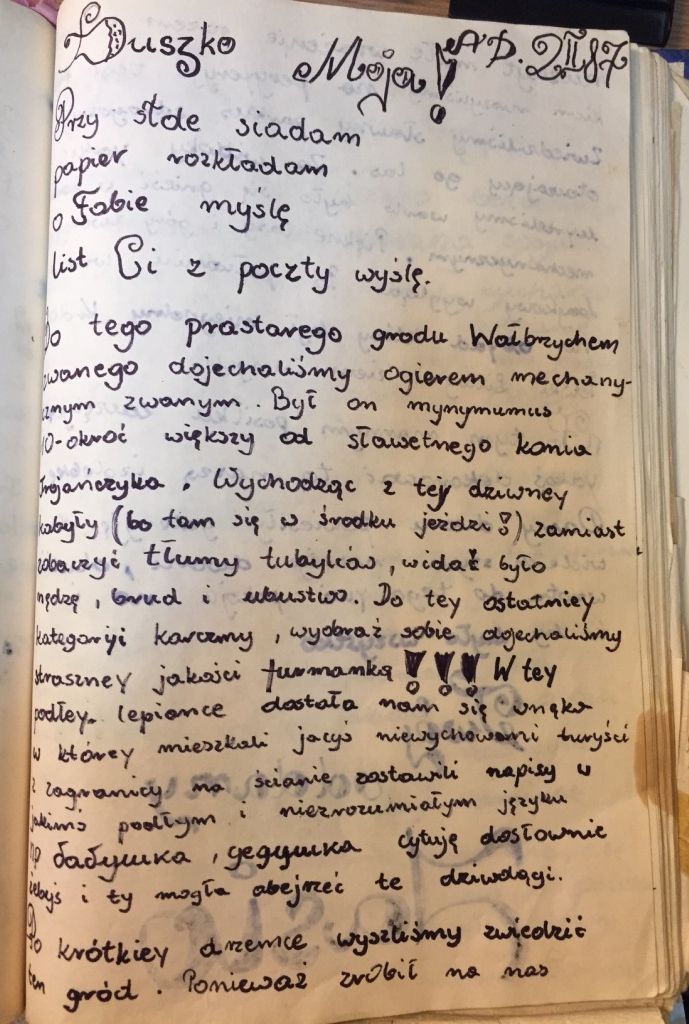 Duszko Moja! AD. 2II87
Przy stole siadam
papier rozkładam
o Fabie myślę
list Ci z poczty wyślę.
Do tego prastarego grodu Wałbrzychem
zwanego dojechaliśmy ogierem mechany-
cznym zwanym. Był on mynymumus
10-okroć większy od sławetnego konia
trojańczyka. Wychodząc z tej dziwney
kobyły (bo tam się w środku jeździ!) zamiast
zobaczyć tłumy tubylców, widać było
nędzę, brud i ubustwo. Do tey ostatniey
kategoryji karczmy, wyobraź sobie dojechaliśmy
straszney jakości furmanką!!! W tey
podłey lepiance dostała nam się wnęka
w którey mieszkali jacyś niewychowani turyści
z zagranicy na ścianie zostawili napisy w
jakimś podłym i niezrozumiałym języku
np бабушка, дедушка cytuję dosłownie
żebyś i ty mogła obejrzeć te dziwolągi.
Po krótkiey drzemce wyszliśmy zwiedzić
ten gród. Ponieważ zrobił na nas